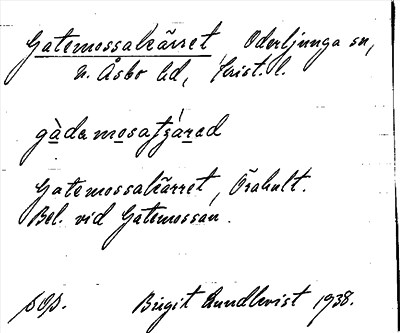 Gatemossakärret Oderljunga sn,
n. Åsbo hd, Krist. l.
gàdamosatɟárad
Gatemossakärret, Örahult.
Bel. vid Gatemossan.
sop. Birgit Lundkvist 1938.